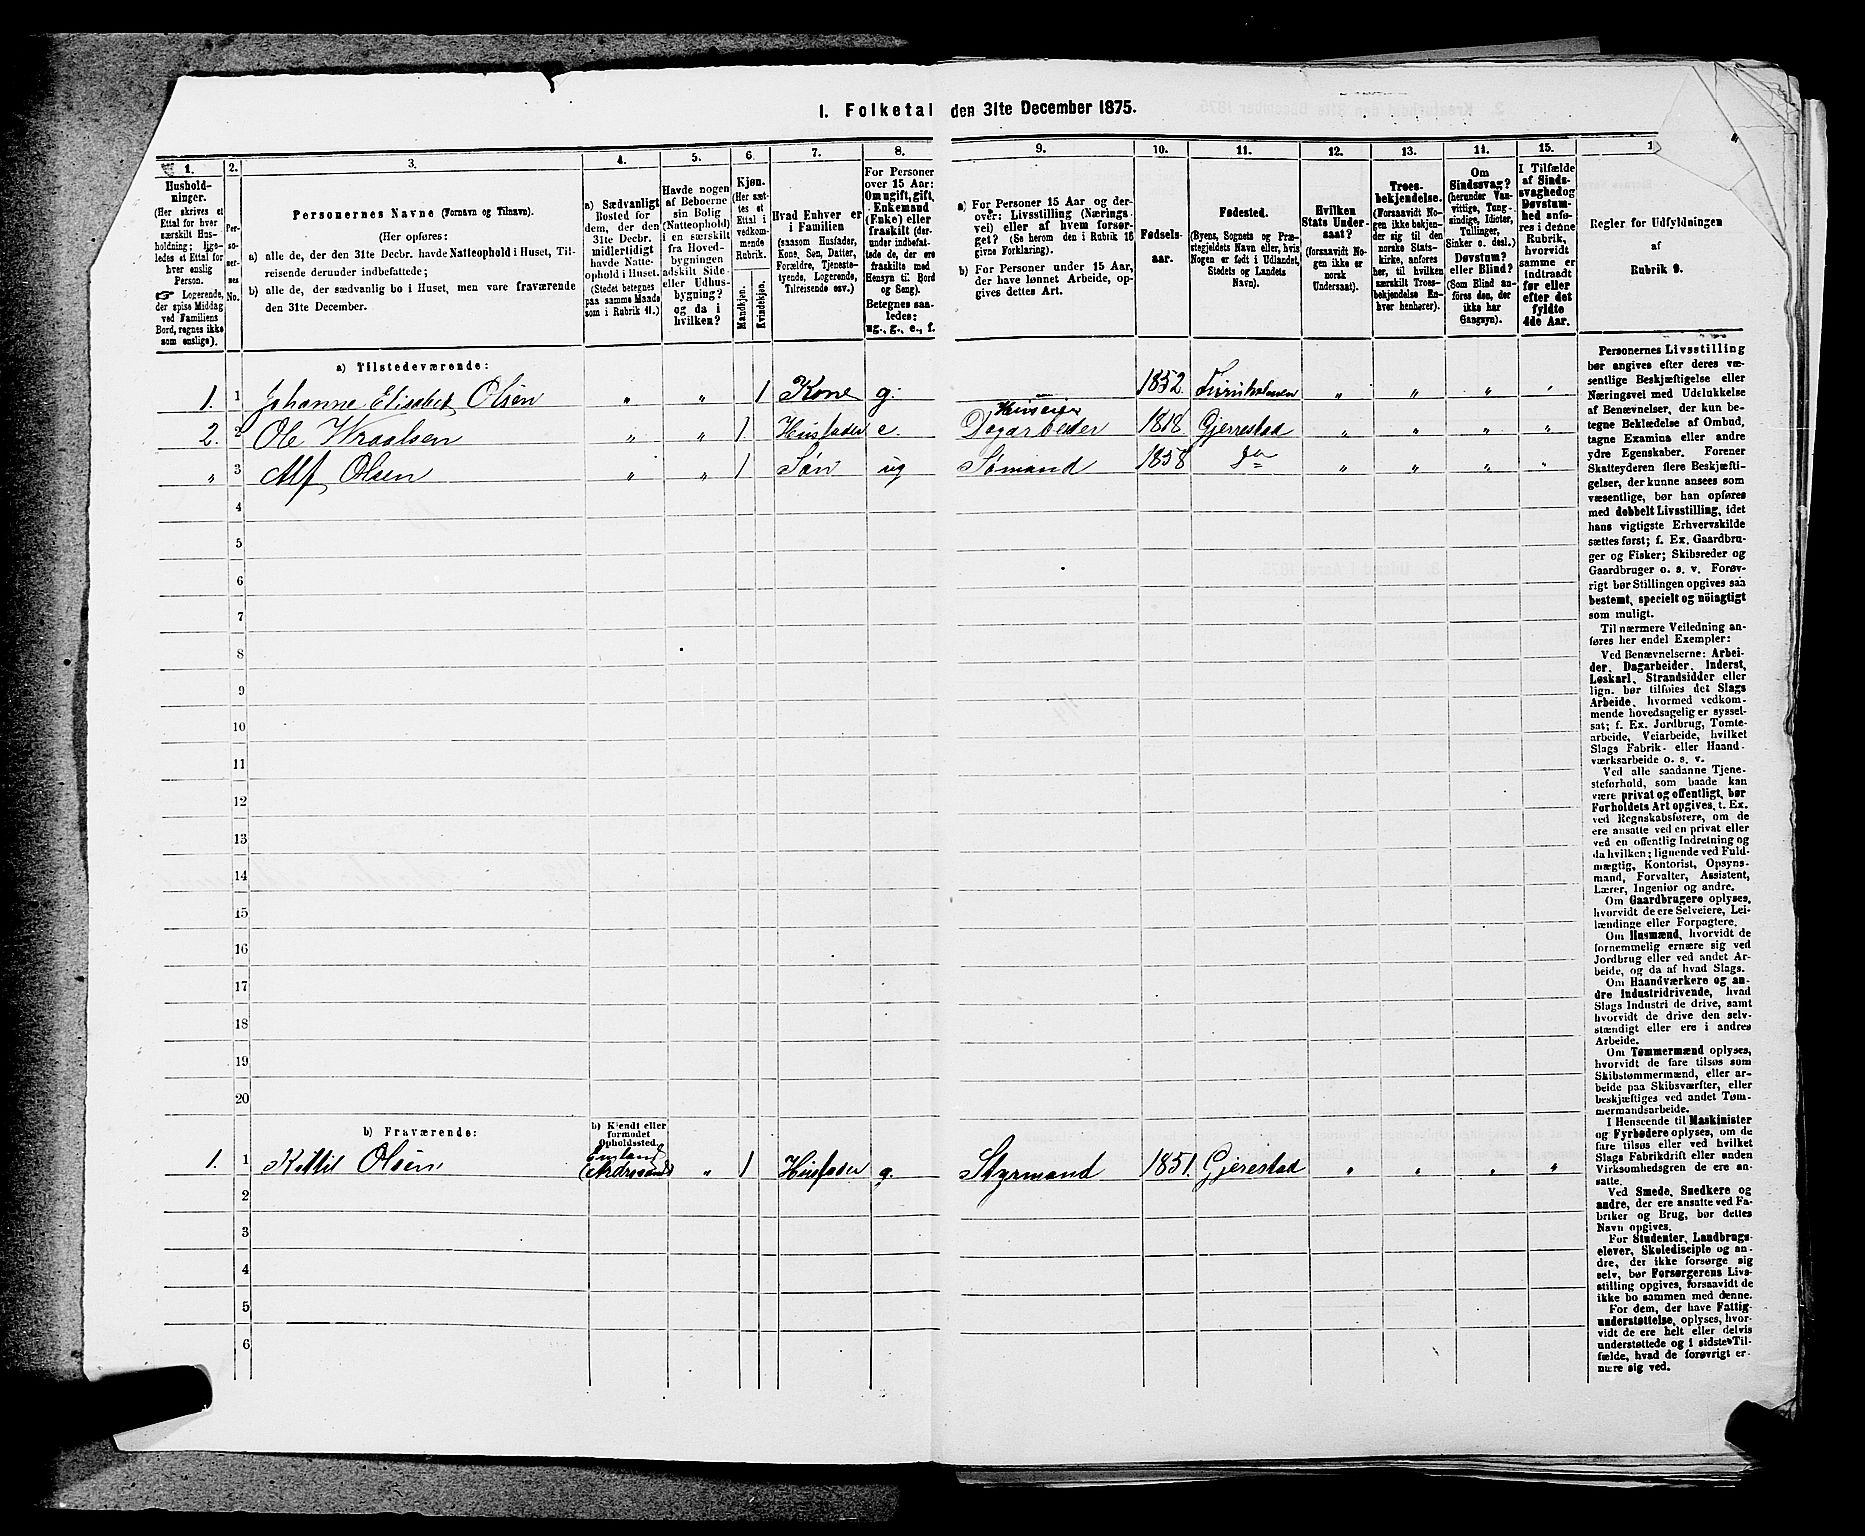 I. Folketal den 31te December 1875.
1. 2. 3. 4. 5. 6. 7. 8. 9. 10. 11. 12. 13. 14. 15. 1
Hushold-
ninger.
(Her skrives et
Ettal for hver
særskilt Hus-
holdning; lige-
ledes et Ettal for
hver enslig
Person.
☞ Logerende,
der spise Middag
ved Familiens
Bord, regnes ikke
som enslige).
Per-
so-
ner-
nes
No.
Personernes Navne (Fornavn og Tilnavn).
(Her opføres:
a) alle de, der den 31te Decbr. havde Natteophold i Huset, Til-
reisende derunder indbefattede;
b) alle de, der sædvanlig bo i Huset, men vare fraværende
den 31te December.
a) Sædvanligt
Bosted for
dem, der den
31te Decbr.
midlertidigt
havde Natte-
ophold i Huset.
(Stedet betegnes
paa samme Maade
som i Rubrik 11.)
Havde nogen
af Beboerne
sin Bolig
(Natteophold)
i en særskilt
fra Hoved-
bygningen
adskilt Side-
eller Udhus-
bygning?
og da i
hvilken?
Kjøn.
(Her sæt-
tes et
Ettal i
vedkom-
mende
Rubrik.
Mandkjøn.
Kvindekjøn.
Hvad Enhver er
i Familien
(saasom Husfader,
Kone, Søn, Datter,
Forældre, Tjeneste-
tyende, Logerende,
Tilreisende osv.)
For Personer
over 15 Aar:
Om ugift, gift,
Enkemand
(Enke) eller
fraskilt (der-
under indbefat-
tede de, der ere
fraskilte med
Hensyn til Bord
og Seng).
Betegnes saa-
ledes:
ug., g., e., f.
a) For Personer 15 Aar og der-
over: Livsstilling (Nærings-
vei) eller af hvem forsør-
get? (Se herom den i Rubrik 16
givne Forklaring).
b) For Personer under 15 Aar,
der have lønnet Arbeide, op-
gives dettes Art.
Fødsels-
aar.
Fødested.
(Byens, Sognets og Præ-
stegjeldets Navn eller, hvis
Nogen er født i Udlandet,
Stedets og Landets
Navn).
Hvilken
Stats Under-
saat?
(forsaavidt No-
gen ikke er
norsk
Undersaat).
Troes-
bekjendelse.
(Forsaavidt No-
gen ikke bekjen-
der sig til den
norske Stats-
kirke, anføres
her, til hvilken
særskilt Troes-
bekjendelse En-
hver henhører).
Om
Sindssvag?
(herunder Van-
vittige, Tung-
sindige, Idioter,
Tullinger,
Sinker o. desl.)
Døvstum?
eller Blind?
(Som Blind an-
føres den, der
ikke har
Gangsyn).
I Tilfælde
af Sinds-
svaghed og
Døvstum-
hed anfø-
res i denne
Rubrik,
hvorvidt
samme er
indtraadt
før eller
efter det
fyldte
4de Aar.
Regler for Udfyldningen
af
Rubrik 9.
a) Tilstedeværende:
1. 1 Johanne Elisabet Olsen " " 1 Kone g. 1852. " " " "
Huseier
2. 2 Ole Wraalsen " " 1 Husfader e. Dagarbeider 1818 Gjerrestad " " " "
" 3 Alf Olsen " " 1 Søn ug Sømand 1858 do " " " "
4
5
6
7
8
9
10
11
12
13
14
15
16
17
18
19
20
b) Fraværende:
b) Kjendt eller
formodet
Opholdssted.
1. 1 Kittil Olsen " 1 Husfader g. Styrmand 1851. Gjerestad " " " "
2
3
4
5
6
Personernes Livsstilling
bør angives efter deres væ-
sentlige Beskjæftigelse eller
Næringsvei med Udelukkelse
af Benævnelser, der kun be-
tegne Beklædelse af Ombud,
tagne Examina eller andre
ydre Egenskaber. Forener
Skatteyderen flere Beskjæfti-
gelser, der kunne ansees som
væsentlige, bør han opføres
med dobbelt Livsstilling, idet
hans vigtigste Erhvervskilde
sættes først; f. Ex. Gaardbru-
ger og Fisker; Skibsreder og
Gaardbruger o. s. v. Forøv-
rigt bør Stillingen opgives saa
bestemt, specielt og nöiagtigt
som muligt.
Til nærmere Veiledning an-
føres her endel Exempler:
Ved Benævnelserne: Arbei-
der, Dagarbeider, Inderst,
Løskarl, Strandsidder eller
lign. bør tilføies det Slags
Arbeide, hvormed vedkom-
mende hovedsagelig er syssel-
sat; f. Ex. Jordbrug, Tomte-
arbeide, Veiarbeide, hvilket
Slags Fabrik- eller Haand-
værksarbeide o. s. v.
Ved alle saadanne Tjene-
steforhold, som baade kan
være privat og offentligt, bør
Forholdets Art opgives, t. Ex.
ved Regnskabsførere, om de
ere ansatte ved en privat eller
ved en offentlig Indretning og
da hvilken; lignende ved Fuld-
mægtig, Kontorist, Opsyns-
mand, Forvalter, Assistent,
Lærer, Ingeniør og andre.
Om Gaardbrugere oplyses,
hvorvidt de ere Selveiere, Lei-
lændinge eller Forpagtere.
Om Husmænd, hvorvidt de
fornemmelig ernære sig ved
Jordbrug eller ved andet Ar-
beide, og da af hvad Slags.
Om Haandværkere og an-
dre Industridrivende, hvad
Slags Industri de drive, samt
hvorvidt de drive den selv-
stændigt eller ere i andres
Arbeide.
Om Tømmermænd oplyses,
hvorvidt de fare tilsøs som
Skibstømmermænd, eller ar-
beide paa Skibsværfter, eller
beskjæftiges ved andet Tøm-
mermandsarbeide.
I Henseende til Maskinister
og Fyrbødere oplyses, om de
fare tilsøs eller ved hvilket
Slags Fabrikdrift eller anden
Virksomhedsgren de ere an-
satte.
Ved Smede, Snedkere og
andre, der ere ansatte ved Fa-
briker og Brug, bør dettes
Navn opgives.
For Studenter, Landbrugs-
elever, Skoledisciple og an-
dre, der ikke forsørge sig
selv, bør Forsørgerens Livs-
stilling opgives, forsaavidt de
ikke bo sammen med denne.
For dem, der have Fattig-
understøttelse, oplyses, hvor-
vidt de ere helt eller delvis
understøttede og i sidste Til-
fælde, hvad de forøvrigt er-
nære sig ved.